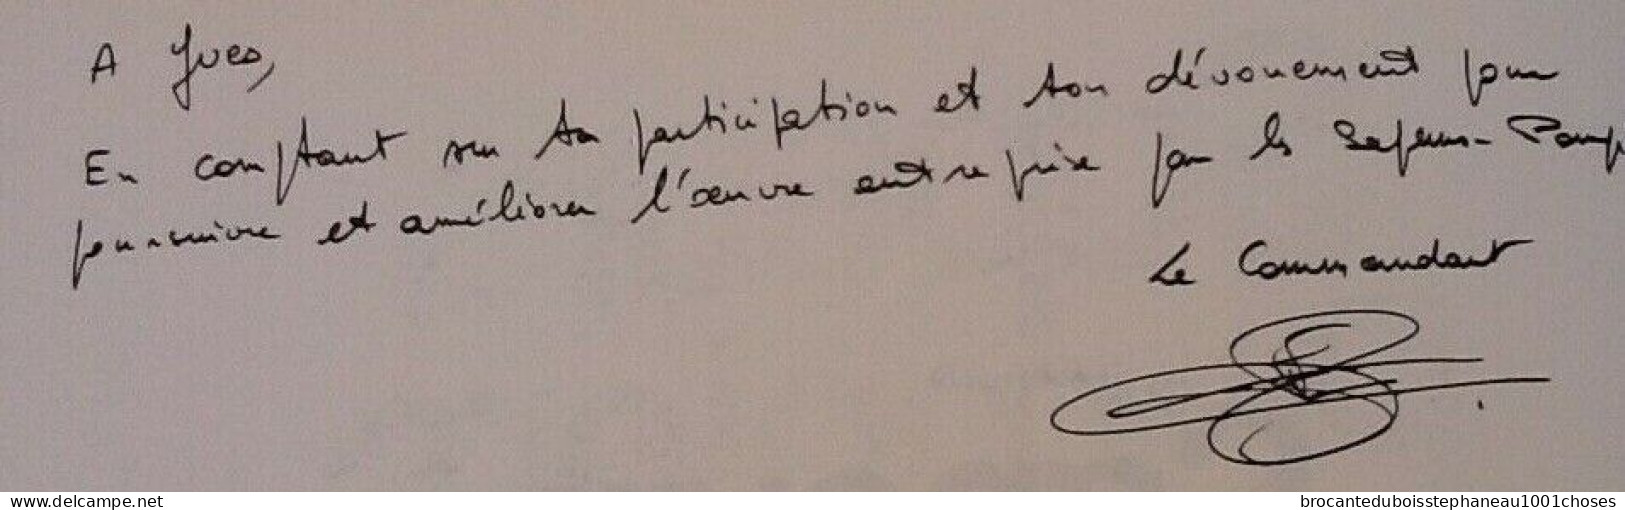 A Yves,
En comptant sur ta participation et ton dévouement pour
poursuivre et améliorer l'œuvre entreprise par les Sapeurs-Pomp
Le Commandant
www.delcampe.net
brocanteduboisstephaneau1001choses